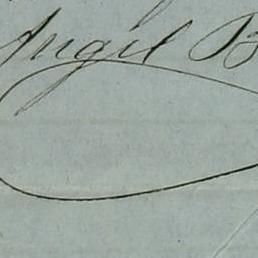 Angel B